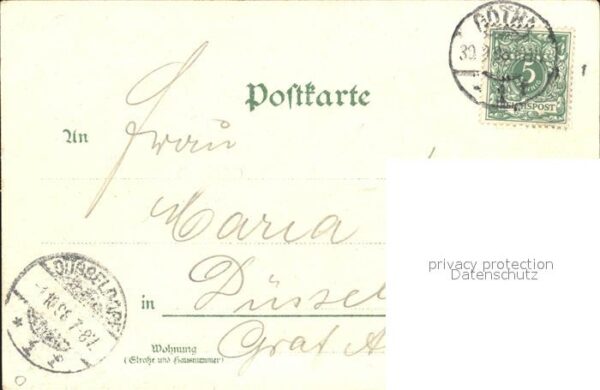 GOTHA
5
REICHSPOST
1
Postkarte
An
Frau
Maria
privacy protection
Datenschutz
DÜSSELDORF
1.10.98.7-8V.
* 1 f
in Düssel
Wohnung Graf A
(Straße und Hausnummer)